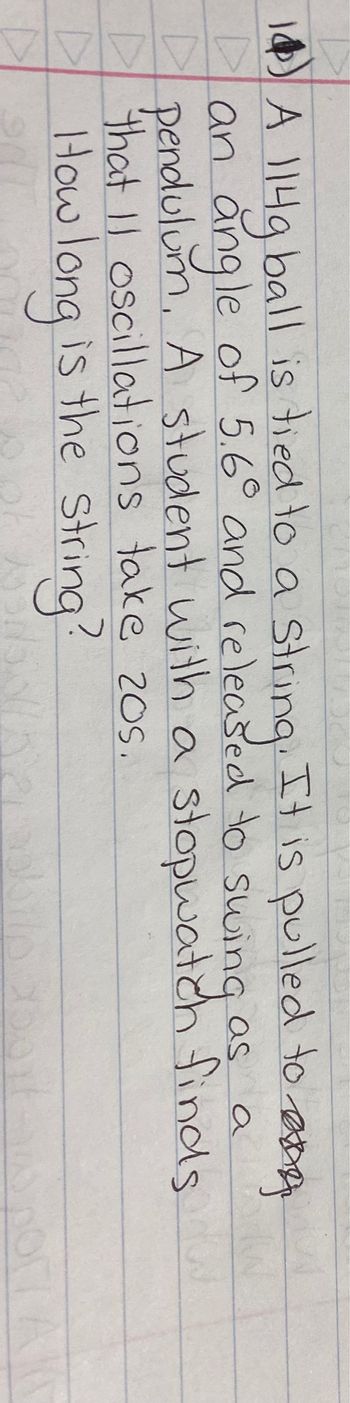 10) A 114g ball is tied to a string. It is pulled to
an angle of 5.6° and released to swing as a
pendulum. A student with a stopwatch finds
that 11 oscillations take 20s.
How long is the string?